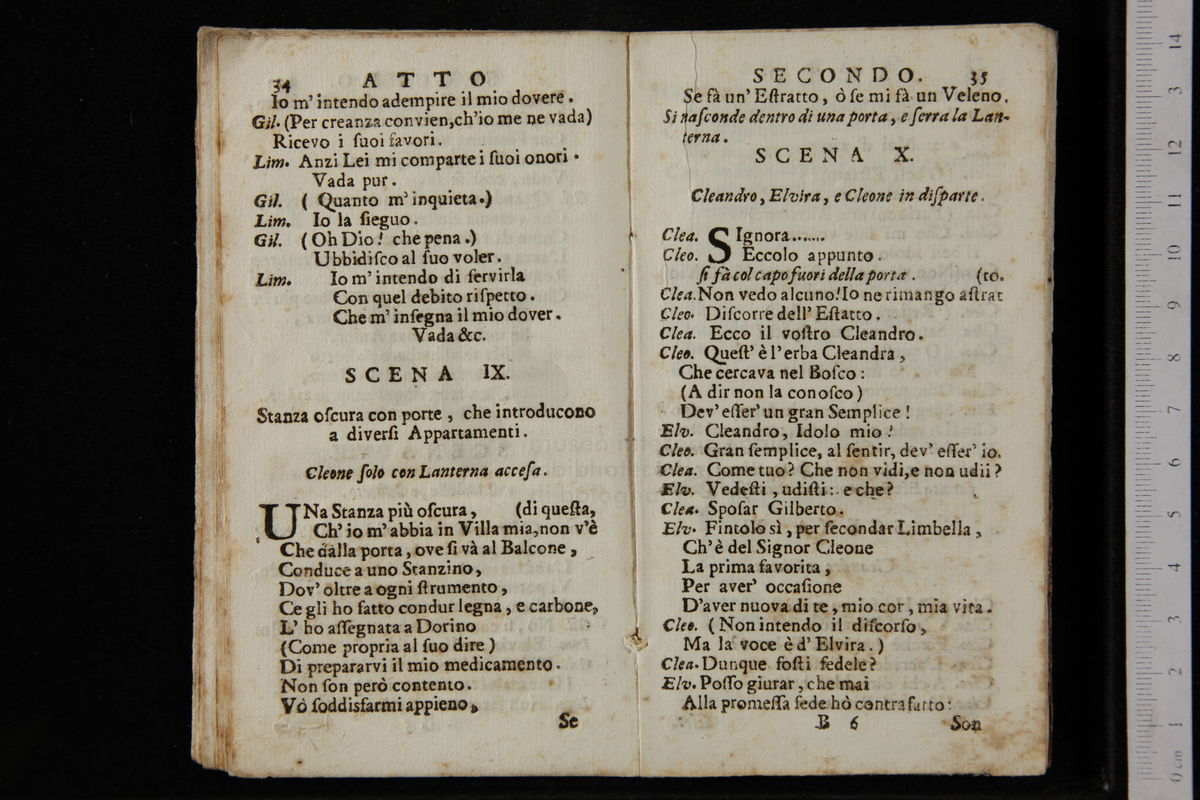 34 ATTO
Io m' intendo adempire il mio dovere.
Gil. (Per creanza convien, ch'io me ne vada)
Ricevo i ſuoi favori.
Lim. Anzi Lei mi comparte i ſuoi onori.
Vada pur.
Gil. ( Quanto m' inquieta.)
Lim. Io la ſieguo.
Gil. ( Oh Dio! che pena.)
Ubbidiſco al ſuo voler.
Lim. Io m' intendo di ſervirla
Con quel debito riſpetto.
Che m' inſegna il mio dover.
Vada &c.
SCENA IX.
Stanza oſcura con porte, che introducono
a diverſi Appartamenti.
Cleone ſolo con Lanterna acceſa.
UNa Stanza più oſcura, (di queſta,
Ch' io m' abbia in Villa mia, non v'è
Che dalla porta, ove ſi và al Balcone,
Conduce a uno Stanzino,
Dov' oltre a ogni ſtrumento,
Ce gli ho fatto condur legna, e carbone,
L' ho aſſegnata a Dorino
(Come propria al ſuo dire)
Di prepararvi il mio medicamento.
Non ſon però contento.
Vò ſoddisfarmi appieno,
Se
SECONDO. 35
Se fà un' Eſtratto, ò ſe mi fà un Veleno.
Si naſconde dentro di una porta, e ſerra la Lan-
terna.
SCENA X.
Cleandro, Elvira, e Cleone in diſparte.
Clea. SIgnora.......
Cleo. Eccolo appunto.
ſi fà col capo fuori della porta. (to.
Clea. Non vedo alcuno! Io ne rimango aſtrat
Cleo. Diſcorre dell' Eſtatto.
Clea. Ecco il voſtro Cleandro.
Cleo. Queſt' è l' erba Cleandra,
Che cercava nel Boſco:
(A dir non la conoſco)
Dev' eſſer' un gran Semplice!
Elv. Cleandro, Idolo mio!
Cleo. Gran ſemplice, al ſentir, dev' eſſer' io.
Clea. Come tuo? Che non vidi, e non udii?
Elv. Vedeſti, udiſti: e che?
Clea. Spoſar Gilberto.
Elv. Fintolo sì, per ſecondar Limbella,
Ch' è del Signor Cleone
La prima favorita,
Per aver' occaſione
D'aver nuova di te, mio cor, mia vita.
Cleo. (Non intendo il diſcorſo,
Ma la voce è d' Elvira.)
Clea. Dunque foſti fedele?
Elv. Poſſo giurar, che mai
Alla promeſſa fede hò contrafatto:
B 6 Son
0 cm 1 2 3 4 5 6 7 8 9 10 11 12 3 14